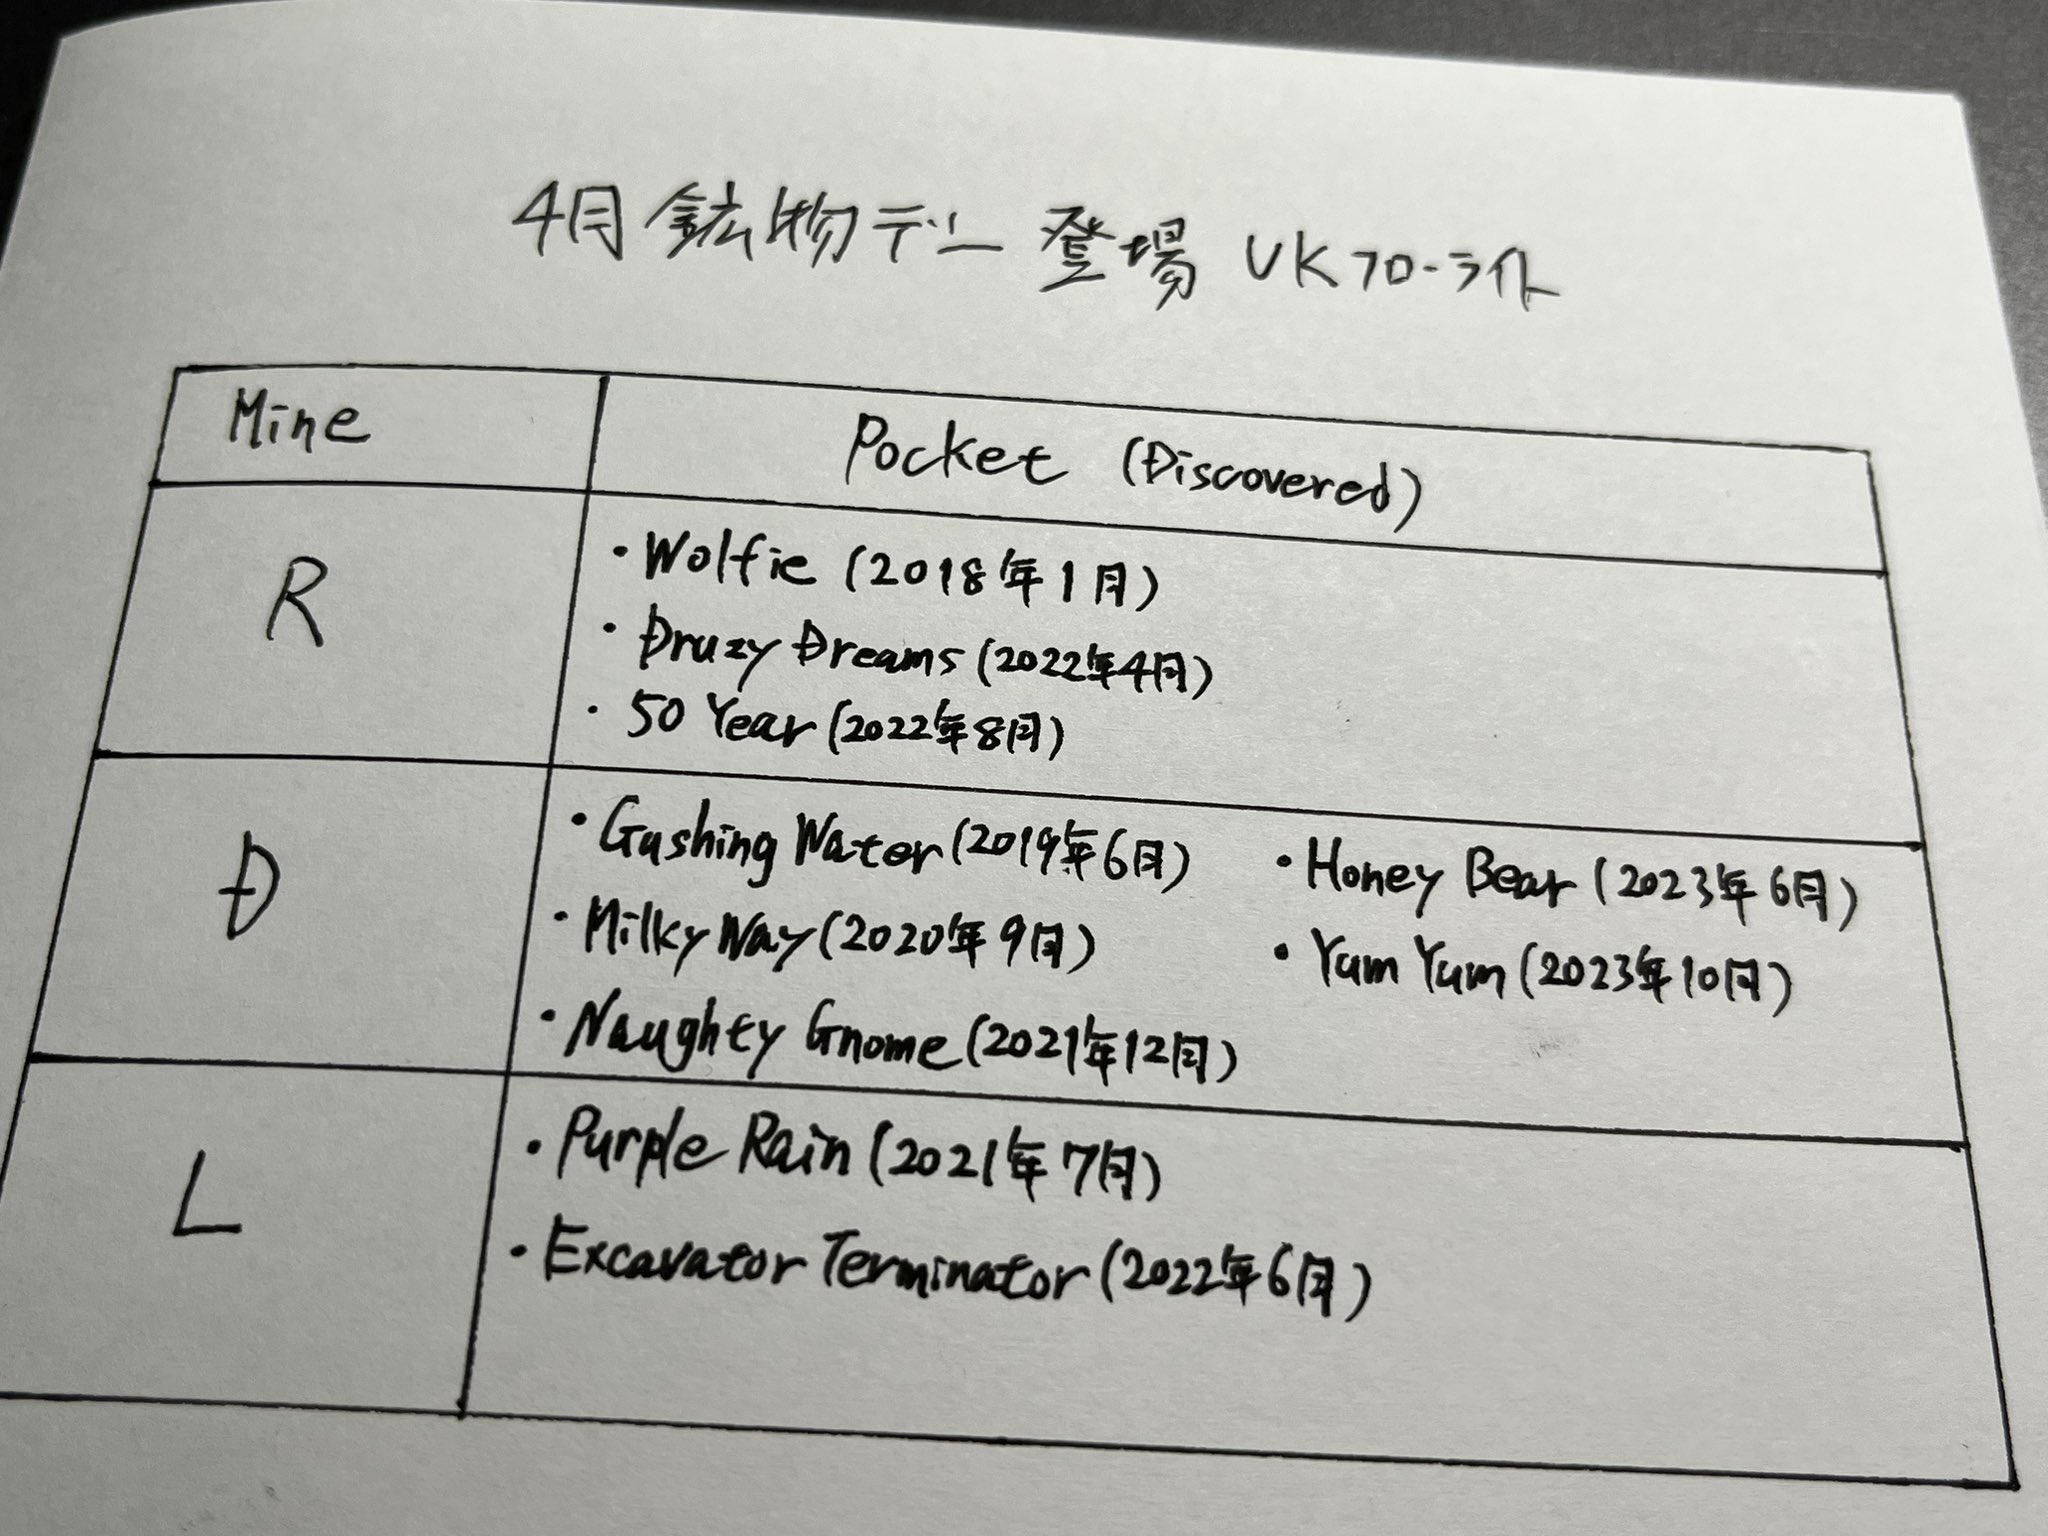 4月鉱物デー 登場 UKフローライト
Mine
Pocket (Discovered)
R
・Wolfie (2018年1月)
・Druzy Dreams (2022年4月)
・50 Year (2022年8月)
D
・Gushing Water (2019年6月)
・Milky Way (2020年9月)
・Naughty Gnome (2021年12月)
・Honey Bear (2023年6月)
・Yum Yum (2023年10月)
L
・Purple Rain (2021年7月)
・Excavator Terminator (2022年6月)